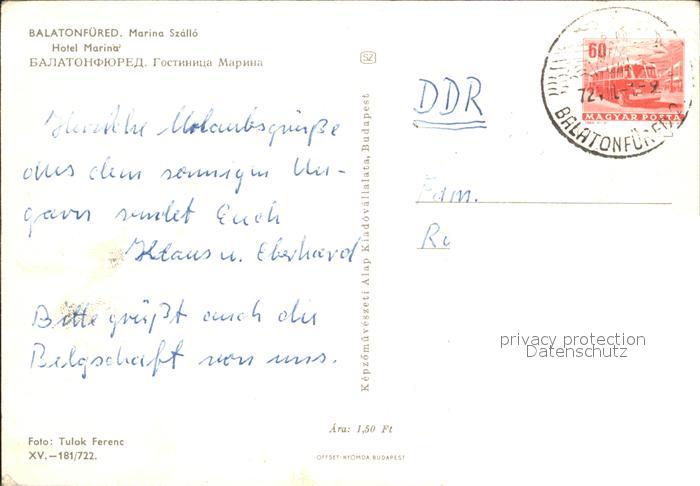 BALATONFÜRED. Marina Szálló
Hotel Marina
БАЛАТОНФЮРЕД. Гостиница Марина
SZ
60
MAGYAR POSTA
BALATONFÜRED
DDR
Fam.
Herzliche Urlaubsgrüße
aus dem sonnigen Un-
garn sendet Euch
Klaus u. Eberhard
Bitte grüßt auch die
Belgschaft von uns.
Képzőművészeti Alap Kiadóvállalata, Budapest
privacy protection
Datenschutz
Ára: 1,50 Ft
Foto: Tulok Ferenc
XV.—181/722.
OFFSET-NYOMDA, BUDAPEST